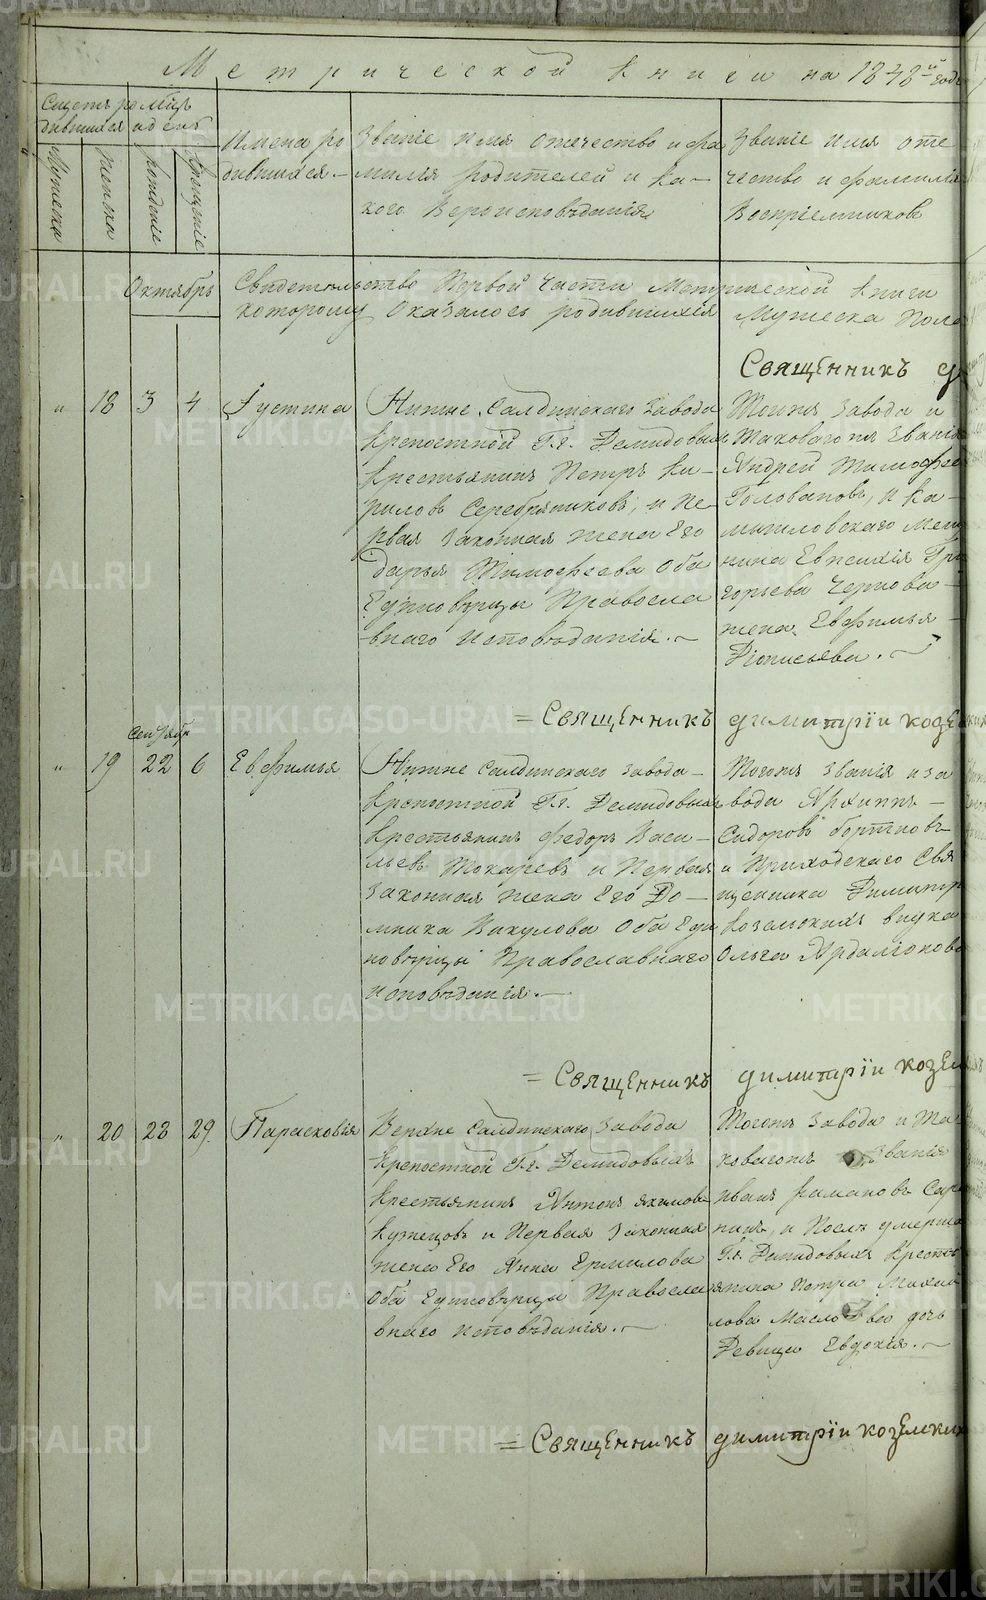 Метрической книги на 1848й годъ
Счетъ ро
дившихся
Мѣс
и день
Имена ро
дившихся.
Званіе имя отечество и фа
милія родителей и ка-
кого Вероисповѣданія
Званіе имя оте
чество и фамилія
Воспріемниковъ
Мужеска
Женска
рожденіе
крещеніе
Октябрь
Свидетельство Первой Части Метрической Книги
которому Оказалось родившихся Мужеска Пола
Священникъ
" 18 3 4 Іустина
Нижне Салдинскаго завода
крепостной Г.г. Демидовыхъ
крестьянинъ Петръ Ки-
риловъ Серебряниковъ, и пе
рвая законная жена Его
дарья Тимофеева Оба
Единовѣрцы Правосла
внаго исповѣданія.
Тогожъ завода и
Таковагожъ званія
Андрей Тимофее
Головановъ, и Ка-
мышловскаго меща
нина Евпсихія Гри
горьева Чернова
жена Евфимья
Діонисьева.
= Священникъ димитрїи козел
Сентябрь
" 19 22 6 Евфимья
Нижне Салдинскаго завода
крепостной Г.г. Демидовыхъ
Крестьянинъ Федоръ Васи-
льевъ Токаревъ и Первая
законная жена Его До-
мника Викулова Оба Еди
новѣрцы Православнаго
исповѣданія.
Тогожъ званія и за
вода Архиппъ
Сидоровъ бортновъ
и Приходскаго Свя
щенника Димитр
Козельскихъ внука
Ольга Ардаліонова
= Священникъ димитрїи козел
" 20 28 29 Парасковія
Верхне Салдинскаго завода
крепостной Г.г. Демидовыхъ
Крестьянинъ Антонъ Якимовъ
Кузнецовъ и Первая законная
жена Его Анна Ермилова
Оба Единовѣрцы Правосла
внаго исповѣданія.
Тогожъ завода и та
ковагожъ званія
Иванъ Романовъ
нинъ, и После умерша
Г.г. Демидовыхъ Крестья
нина Петра Михаи
лова дочь
Девица Евдокія.
= Священникъ димитрїи козелских
METRIKI.GASO-URAL.RU